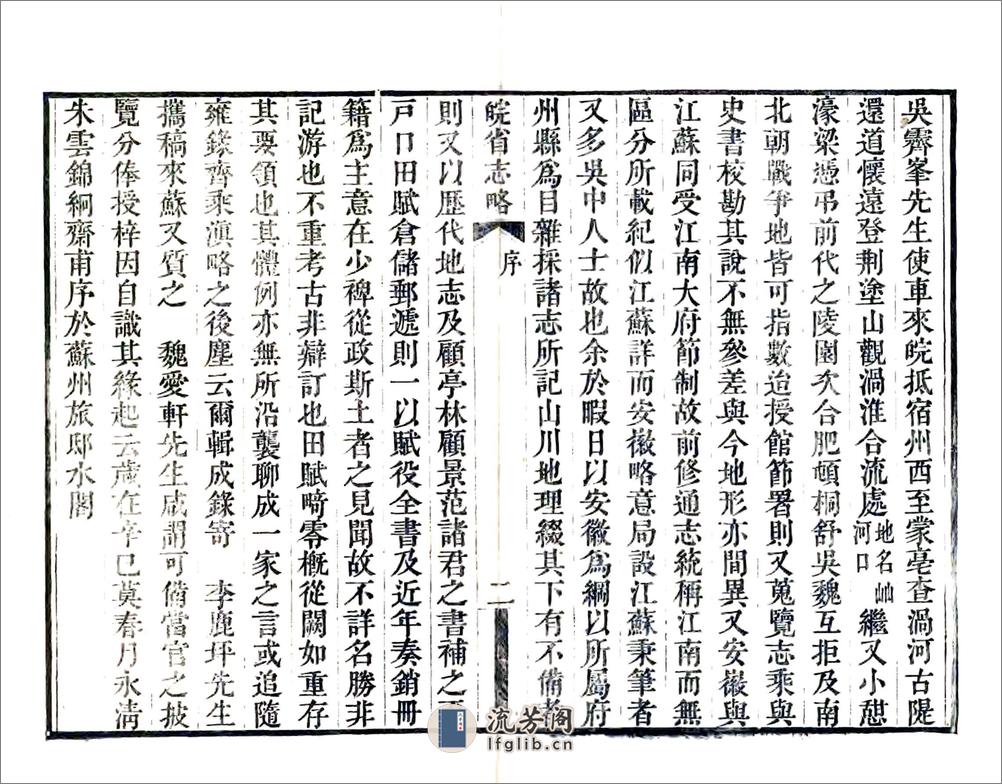 吳霽峯先生使車來皖抵宿州西至蒙亳查渦河古隄
還道懷遠登荆塗山觀渦淮合流處地名䢺河口繼又小憇
濠梁憑弔前代之陵園次合肥頓桐舒吳魏互拒及南
北朝戰爭地皆可指數迨授館節署則又蒐覽志乘與
史書校勘其說不無參差與今地形亦間異又安徽與
江蘇同受江南大府節制故前修通志統稱江南而無
區分所載紀似江蘇詳而安徽略意局設江蘇秉筆者
又多吳中人士故也余於暇日以安徽爲綱以所屬府
州縣爲目雜採諸志所記山川地理綴其下有不備者
皖省志略
序
二
則又以歷代地志及顧亭林顧景范諸君之書補之至
戸口田賦倉儲郵遞則一以賦役全書及近年奏銷冊
籍爲主意在少裨從政斯土者之見聞故不詳名勝非
記游也不重考古非辯訂也田賦畸零槪從闕如重存
其要領也其體例亦無所沿襲聊成一家之言或追隨
雍錄齊乘滇略之後塵云爾輯成錄寄 李鹿坪先生
攜稿來蘇又質之 魏愛軒先生咸謂可備當官之披
覽分俸授梓因自識其緣起云歲在辛巳蓂春月永淸
朱雲錦絅齋甫序於蘇州旅邸水閣
流芳阁
lfglib.cn